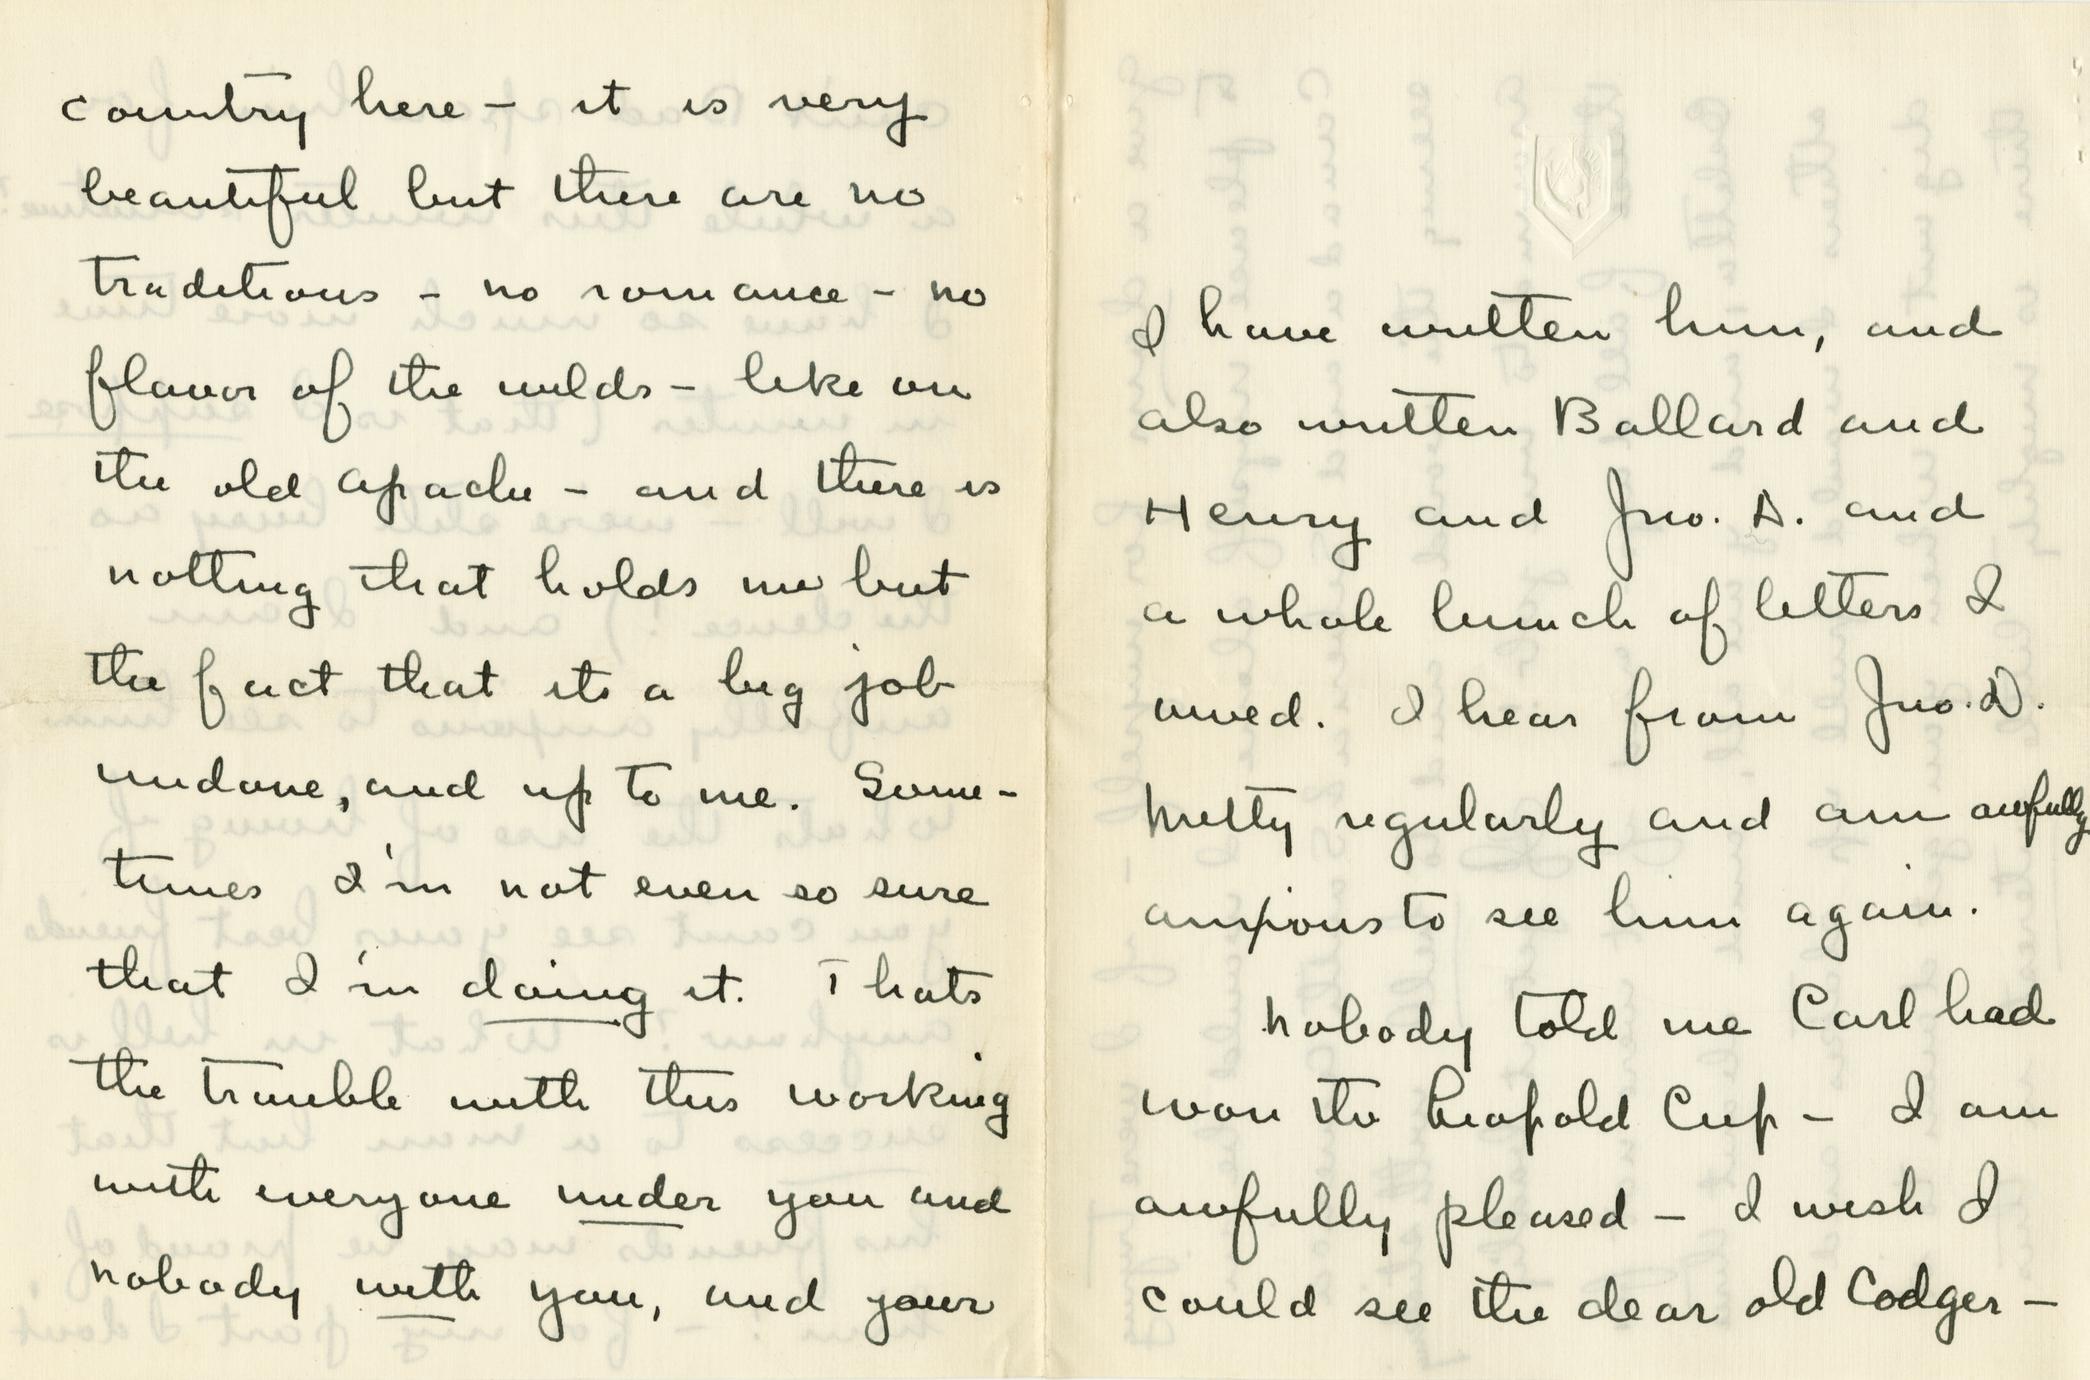 country here – it is very
beautiful but there are no
traditions – no romance – no
flavor of the wilds – like on
the old Apache – and there is
nothing that holds me but
the fact that its a big job
undone, and up to me. Some-
times I'm not even so sure
that I'm doing it. Thats
the trouble with this working
with everyone under you and
nobody with you, and your
I have written him, and
also written Ballard and
Henry and Jno. D. and
a whole bunch of letters I
owed. I hear from Jno. D.
pretty regularly and am awfully
anxious to see him again.
Nobody told me Carl had
won the Leopold Cup – I am
awfully pleased – I wish I
could see the dear old Codger –